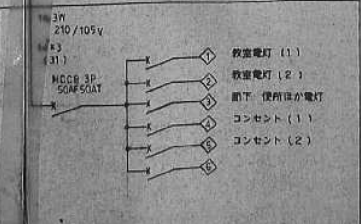 3W
210/105V
(31)
MCCB 3P
50AF50AT
1 教室電灯(1)
2 教室電灯(2)
3 廊下 便所ほか電灯
4 コンセント(1)
5 コンセント(2)
6